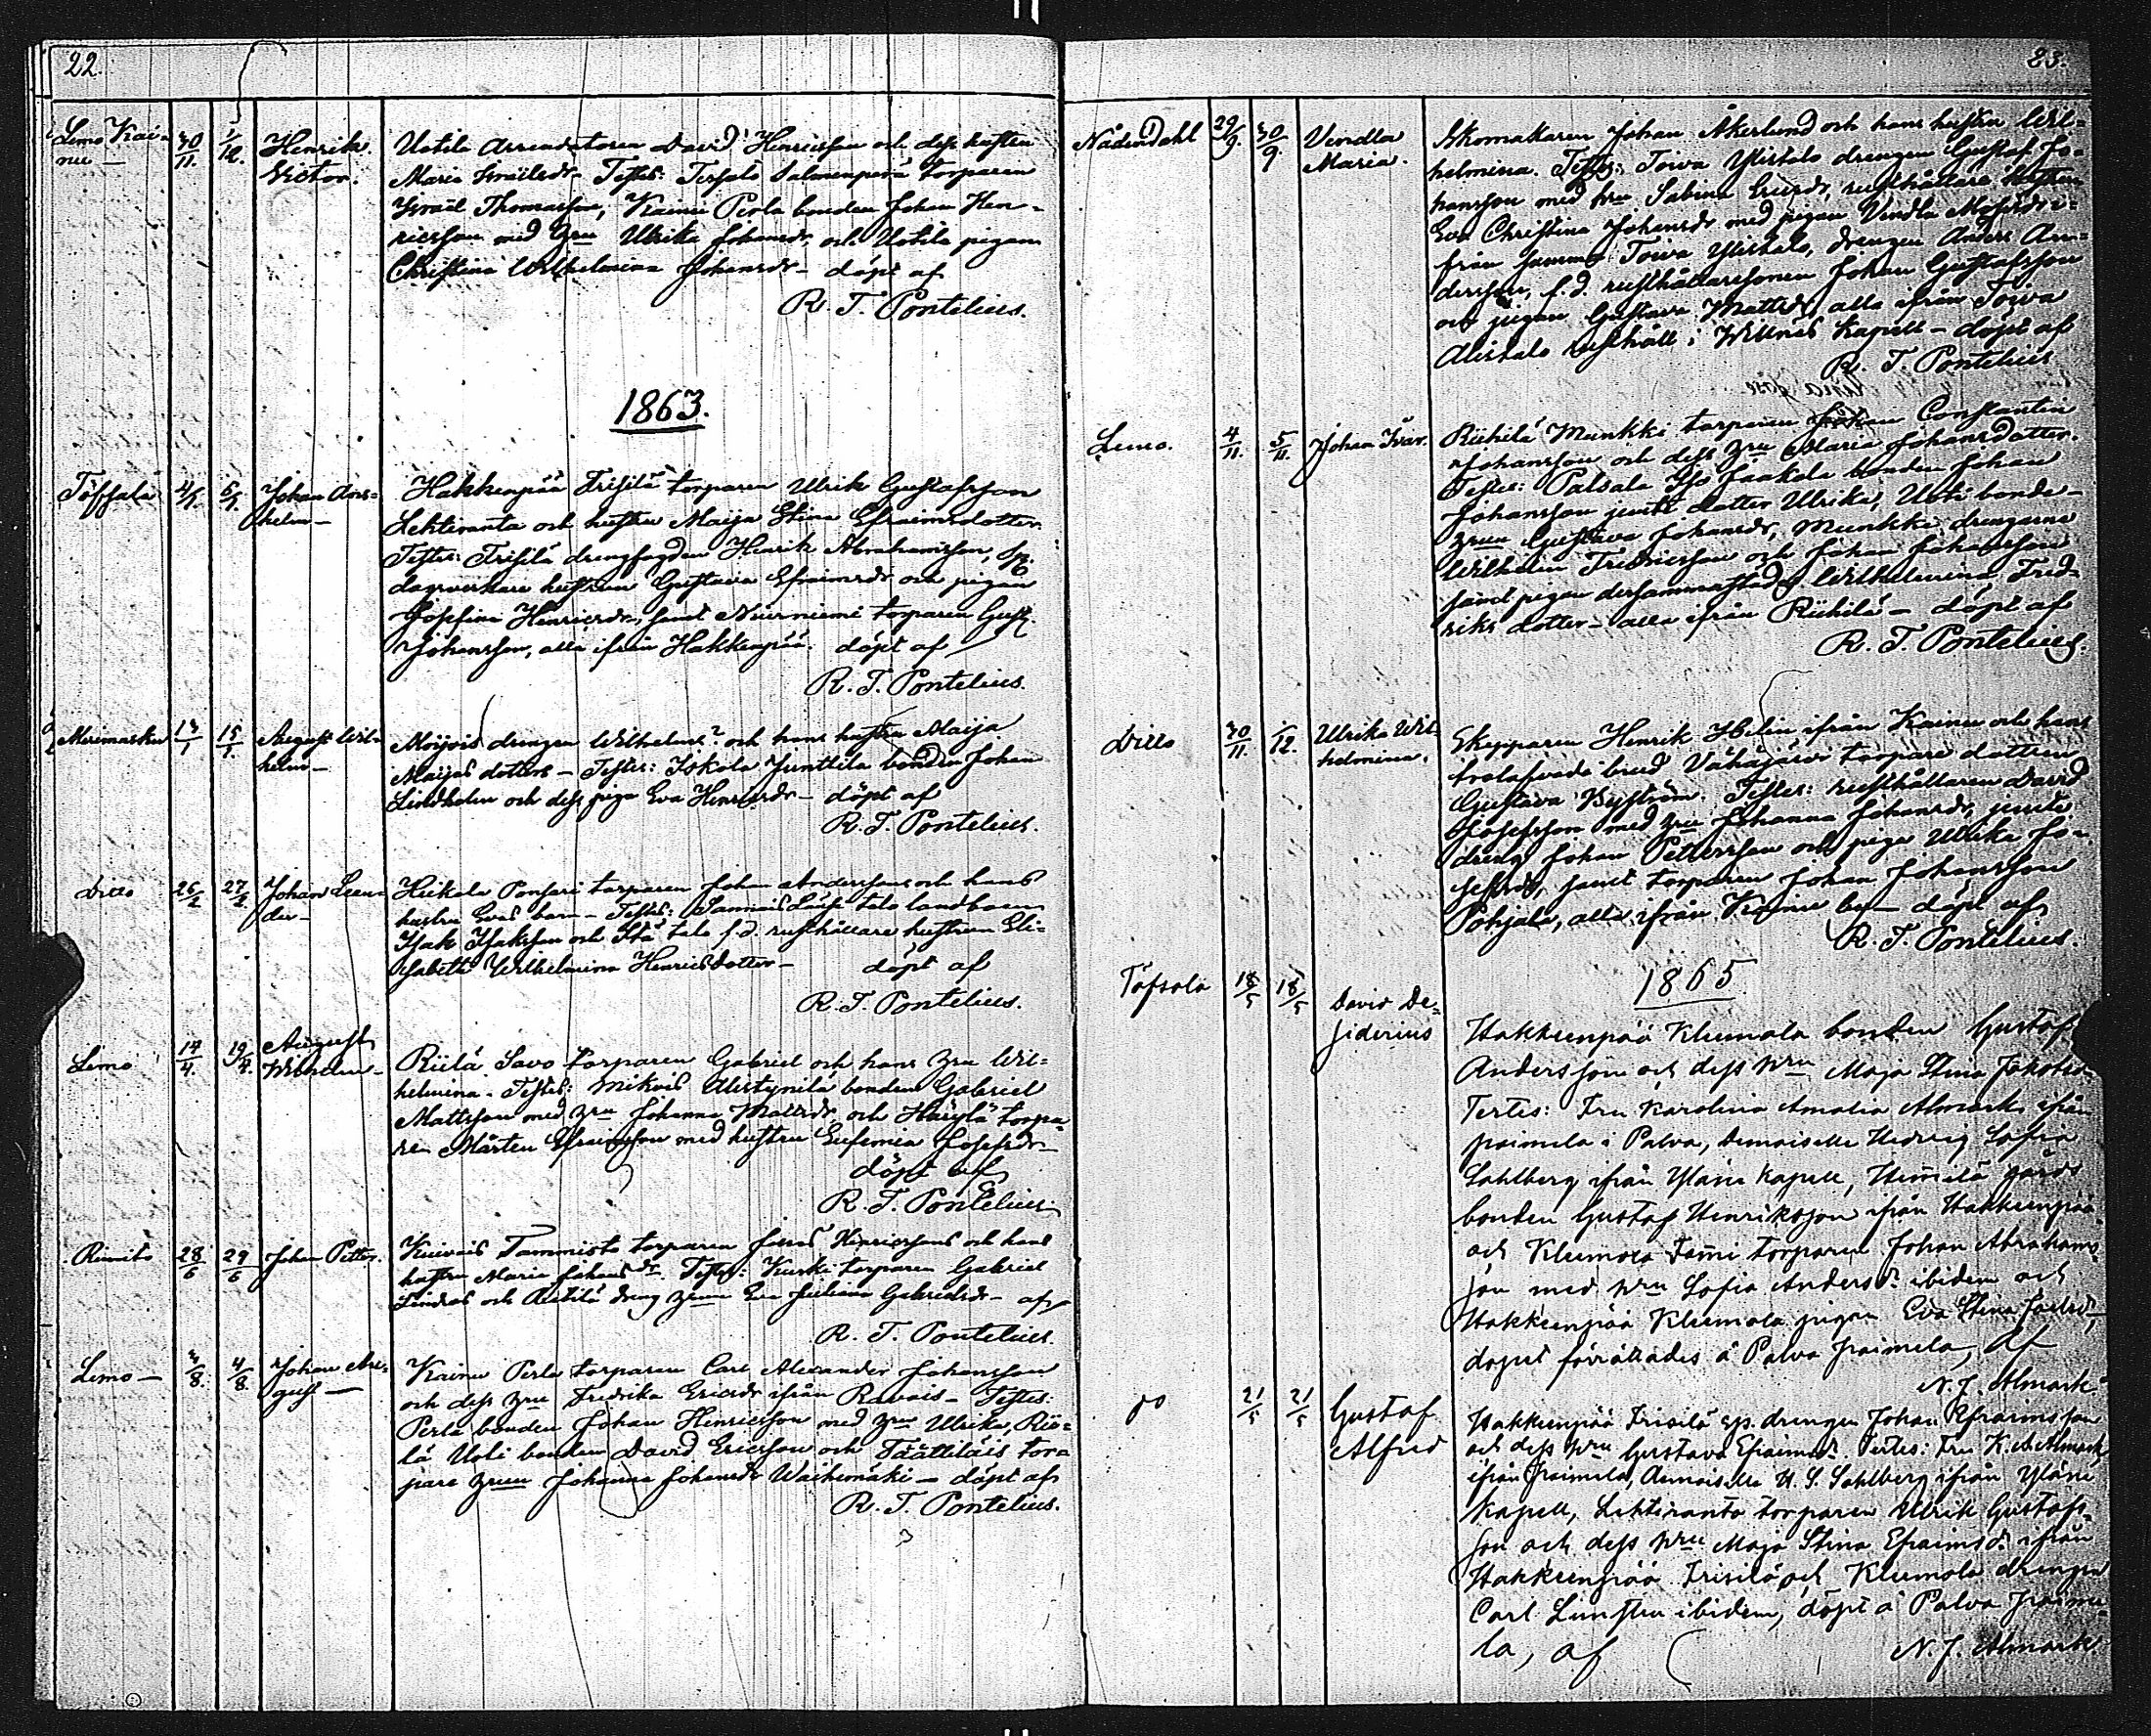 22.
Lemo Kai-
nu — 30/11. 1/12. Henrik
Victor.
Uotila Arrendatoren David Henricsson och dess hustru
Maria Israelsdr — Testes: Tersalo Salonenperä torparen
Israel Thomasson, Kainu Perla bonden Johan Hen-
ricsson med hru Ulrika Johansdr, och Uotila pigan
Christina Wilhelmina Johansdr — döpt af
R. T. Pontelius.
1863.
Töfsala 4/1. 6/1. Johan Ans-
helm —
Hakkenpää Frisilä torparen Ulrik Gustafsson
Lehtiranta och hustru Maija Stina Efraimsdotter.
Testes: Frisilä drengfogden Henrik Abrahamsson, Sp.
dagsverkare hustrun Gustava Efraimsdr och pigan
Josefina Henricsdr, samt Niurniemi torparen Gust.
Johansson, alla ifrån Hakkenpää. döpt af
R. T. Pontelius.
Merimasku 13/1 15/1. August Wil-
helm —
Moijois drengen Wilhelms? och hans hustru Maija
Maijas dotters — Testes: Iskola Junttila bonden Johan
Lindholm och dess piga Eva Henricsdr — döpt af
R. T. Pontelius.
Ditto 26/2 27/2 Johan Lean-
der —
Heikola Ponsari torparen Johan Anderssons och hans
hustru Evas barn — Testes: Sannais talo landbonden
Isak Isaksson och talo f.d. rusthållare hustrun Eli-
sabeth Wilhelmina Henricsdotter — döpt af
R. T. Pontelius.
Lemo 14/4. 19/4. August
Wilhelm —
Riilä Savo torparen Gabriel och hans hru Wil-
helmina. Testes: Mikois Alistynilä bonden Gabriel
Mattsson med hru Johanna Mattsdr och Härylä torpa-
ren Mårten Efraimsson med hustru Eufemia Josefsdr —
döpt af
R. T. Pontelius
Rimito 28/6 29/6 Johan Petter.
Kuivais Tammisto torparen Jonas Henricssons och hans
hustru Maria Johansdr. Testes: Kurki torparen Gabriel
Lindros och Anttilä dreng hrun Eva Juliana Gabrielsdr — af
R. T. Pontelius.
Lemo — 3/8. 4/8. Johan Au-
gust —
Kainu Perla torparen Carl Alexander Johansson
och dess hru Fredrika Ericsdr ifrån Ravais — Testes:
Perla bonden Johan Henricsson med hru Ulrika, Rii-
lä Uoti bonden David Ericsson och Taättiläis tor-
pare hrun Johanna Johansdr Waihemäki — döpt af
R. T. Pontelius.
23.
Nådendahl 29/9. 30/9. Vendla
Maria.
Skomakaren Johan Åkerlund och hans hustru Wil-
helmina. Testes: Toiva Ylistalo drengen Gustaf Jo-
hansson med hru Sabina Ericsdr, rusthållare hustrun
Eva Christina Johansdr med pigan Vendla Mosesdr
från samma Toiva Ylistalo, drengen Anders An-
dersson, f.d. rusthållaresonen Johan Gustafsson
och pigan Gustava Mattsdr, alla ifrån Toiva
Alistalo rusthåll i Willnäs Kapell — döpt af
R. T. Pontelius
Lemo. 4/11. 5/11. Johan Ivar.
Riihilä Munkki torparen Johan Constantin
Johansson och dess hru Maria Johansdotter.
Testes: Palsala Iso Jaakola bonden Johan
Johansson jemte dotter Ulrika, Uoti bonde-
hrun Gustava Johansdr, Munkki drengarne
Wilhelm Fredricsson och Johan Johansson
samt pigan dersammastädes Wilhelmina Fred-
riks dotter — alla ifrån Riihilä — döpt af
R. T. Pontelius.
Ditto 30/11. 1/12. Ulrika Wil-
helmina.
Skepparen Henrik Helin ifrån Kainu och hans
trolofvade brud Vähäjärvi torpare dottren
Gustava Byström. Testes: rusthållaren David
Josefsson med hru Johanna Johansdr, jemte
dreng Johan Pettersson och piga Ulrika Jo-
sefsdr, samt torparen Johan Johansson
Pohjala, alla ifrån Kainu by — döpt af
R. T. Pontelius.
1865
Töfsala 18/5 18/5 David De-
siderius
Hakkenpää Klemola bonden Gustaf
Andersson och dess hru Maja Stina Jakobsd.
Testes: Fru Karolina Amalia Almark ifrån
paimela i Palva, Demoiselle Hedvig Sofia
Sahlberg ifrån Yläne Kapell, Heinilä gårds
bonden Gustaf Henriksson ifrån Hakkenpää,
och Klemola Tomi torparen Johan Abrahams-
son med hru Sofia Andersd. ibidem och
Hakkenpää Klemola pigan Eva Stina Joelsd,
dopet förrättades å Palva paimela, af
N. J. Almark.
do 21/5 21/5 Gustaf
Alfred
Hakkenpää Frisilä sp. drengen Johan Efraimsson
och dess hru Gustava Efraimsd. Testes: Fru K. A. Almark,
ifrån Paimela, Demoiselle H. S. Sahlberg ifrån Yläne
Kapell, Lehtiranta torparen Ulrik Gustafs-
son och dess hru Maja Stina Efraimsd. ifrån
Hakkenpää Frisilä och Klemola drengen
Carl Lunstén ibidem, döpt å Palva paime-
la, af N. J. Almark.